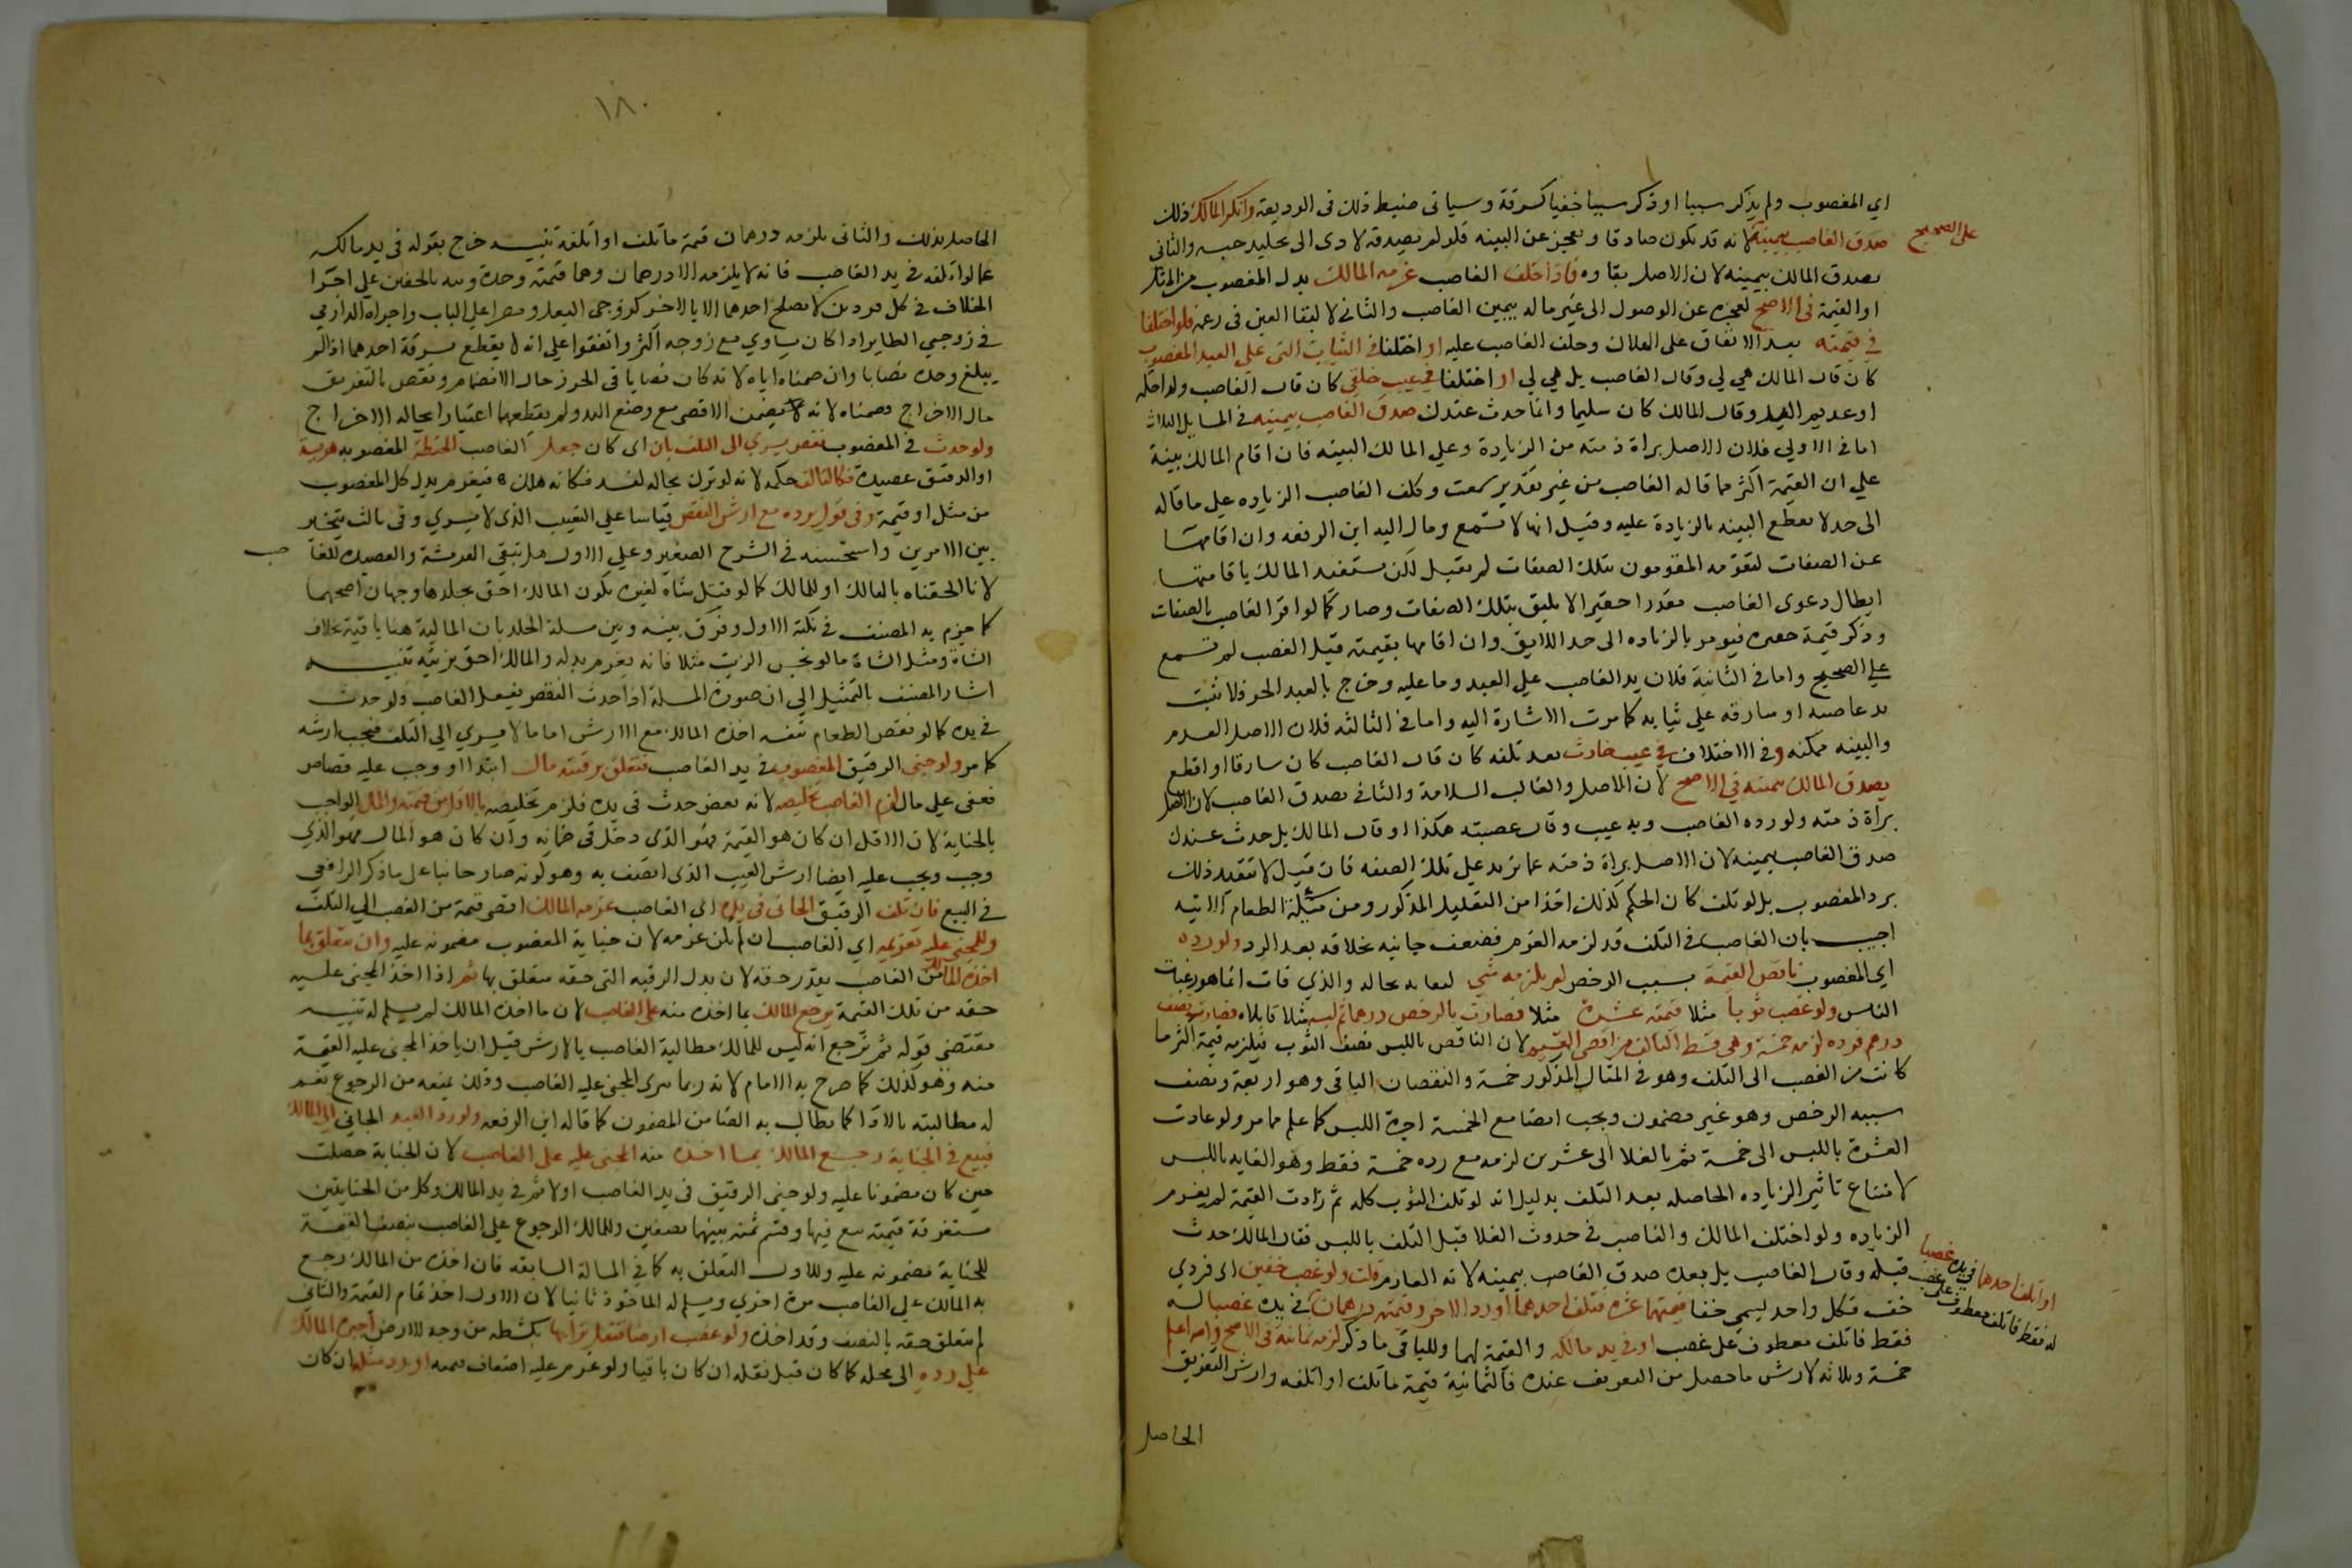 اي المغصوب ولم يذكر سببا او ذكر سببا خفيا كسرقة وسياتى ضبط ذلك فى الوديعة وانكر المالك ذلك
صدق الغاصب بيمينه لانه قد يكون صادقا ويعجز عن البينه فلو لم نصدقه لادى الى تخليد حبسه والثانى
على الصحيح
يصدق المالك بيمينه لان الاصل بقاوه فاذا حلف الغاصب غرمه المالك بدل المغصوب من المثل
او القيمة فى الاصح لعجزه عن الوصول الى عين ماله بيمين الغاصب والثانى لا لبقا العين فى زعمه فلو اختلفا
في قيمته بعد الاتفاق على الهلاك وحلف الغاصب عليه او اختلفا في الثياب التى على العبد المغصوب
كان قال المالك هي لي وقال الغاصب بل هي لي او اختلفا في عيب خلقي كان قال الغاصب ولد اكمه
او عديم اليد وقال المالك كان سليما وانما حدث عندك صدق الغاصب بيمينه في المسايل الثلاث
اما في الاولى فلان الاصل براة ذمته من الزيادة وعلي المالك البينه فان اقام المالك بينة
علي ان القيمة اكثر مما قاله الغاصب من غير تقدير سمعت وكلف الغاصب الزياده على ما قاله
الى حد لا تقطع البينه بالزيادة عليه وقيل انها لا تسمع ومال اليه ابن الرفعه وان اقامها
عن الصفات لتقومه المقومون بتلك الصفات لم تقبل لكن يستفيد المالك باقامتها
ابطال دعوى الغاصب مقدرا حقيرا لا يليق بتلك الصفات وصار كما لو اقر الغاصب بالصفات
وذكر قيمة حقيره فيومر بالزياده الى حد اللايق وان اقامها بقيمته قبل الغصب لم تسمع
علي الصحيح واما في الثانية فلان يد الغاصب على العبد وما عليه وخرج بالعبد الحر فلا تثبت
يد غاصبه او سارقه علي ثيابه كما مرت الاشارة اليه واما في الثالثه فلان الاصل العدم
والبينه ممكنه وفى الاختلاف في عيب حادث بعد تلفه كان قال الغاصب كان سارقا او اقطع
يصدق المالك بيمينه فى الاصح لان الاصل والغالب السلامة والثانى يصدق الغاصب لان الاصل
براة ذمته ولو رده الغاصب وبه عيب وقال غصبته هكذا وقال المالك بل حدث عندك
صدق الغاصب بيمينه لان الاصل براة ذمته عما يزيد على تلك الصفه فان قيل لا تتقيد ذلك
برد المغصوب بل لو تلف كان الحكم كذلك اخذا من التعليل المذكور ومن مسئلة الطعام الاتيه
اجيب بان الغاصب فى التلف قد لزمه الغرم فضعف جانبه بخلافه بعد الرد ولو رده
اي المغصوب ناقص القيمة بسبب الرخص لم يلزمه شي لبقايه بحاله والذي فات انما هو رغبات
الناس ولو غصب ثوبا مثلا قيمته عشرة مثلا فصارت بالرخص درهما ثم لبسه مثلا فابلاه فصارت نصف
درهم فرده لزمه خمسة وهى قسط التالف من اقصى القيم لان الناقص باللبس نصف الثوب فيلزمه قيمة اكثر ما
كانت من الغصب الى التلف وهو فى المثال المذكور خمسة والنقصان الباقى وهو اربعة ونصف
سببه الرخص وهو غير مضمون ويجب ايضا مع الخمسة اجرة اللبس كما علم مما مر ولو عادت
العشرة باللبس الى خمسة ثم بالغلا الى عشرين لزمه مع رده خمسة فقط وهو الفايت باللبس
لامتناع تاثير الزياده الحاصله بعد التلف بدليل انه لو تلف الثوب كله ثم زادت القيمة لم يغرم
الزياده ولو اختلف المالك والغاصب فى حدوث الغلا قبل التلف باللبس فقال المالك حدث
قبله وقال الغاصب بل بعده صدق الغاصب بيمينه لانه الغارم قلت ولو غصب خفين اى فردي
خف فكل واحد يسمى خفا قيمتهما عشرة فتلف احدهما ورد الاخر وقيمته درهمان في يده غصبا له
او اتلف احدهما في يده غصبا
له فقط فاتلف معطوف على غصب
فقط فاتلف معطوف على غصب او في يد مالكه والقيمة لهما وللباقى ما ذكر لزمه ثمانية فى الاصح والله اعلم
خمسة وثلاثه لارش ما حصل من التفريق عنده فالثمانية قيمة ما تلف او اتلفه وارش التفريق
الحاصل
١٨٠
الحاصل بذلك والثانى يلزمه درهمان قيمة ما تلف او اتلفه تنبيه خرج بقوله فى يد مالكه
عما لو اتلفه فى يد الغاصب فانه لا يلزمه الا درهمان وهما قيمته وحده ونبه بالخفين على اجرا
الخلاف فى كل فردين لا يصلح احدهما الا بالاخر كزوجى النعل ومصراعى الباب واجراه الدارمي
فى زوجي الطاير اذا كان يساوي مع زوجه اكثر واتفقوا على انه لا يقطع بسرقة احدهما اذا لم
يبلغ وحده نصابا وان ضمناه اياه لانه كان نصابا فى الحرز حال الانضمام ونقص بالتفريق
حال الاخراج وضمناه لانه يضمن الاقصى مع وضع اليد ولم يقطعها اعتبارا بحالة الاخراج
ولو حدث فى المغصوب نقص يسري الى التلف بان اى كان جعل الغاصب الحنطة المغصوبه هريسة
او الدقيق عصيدة فكالتالف حكمه لانه لو ترك بحاله لفسد فكانه هلك فيغرم بدل كل المغصوب
من مثل او قيمة وفى قول يرده مع ارش النقص قياسا على التعيب الذى لا يسري وفى ثالث يتخير
بين الامرين واستحسنه فى الشرح الصغير وعلى الاول هل تبقى الهريسة والعصيدة للغا
صب
لانا الحقناه بالهالك او للمالك كما لو قتل شاة لغيره يكون المالك احق بجلدها وجهان اصحهما
كما جزم به المصنف فى نكته الاول وفرق بينه وبين مسلة الجلد بان المالية هنا باقية بخلاف
الشاة ومثل الشاة ما لو نجس الزيت مثلا فانه يغرم بدله والمالك احق بزيته تنبيه
اشار المصنف بالتمثيل الى ان صورة المسلة اذا حدث النقص بفعل الغاصب ولو حدث
فى يده كما لو تعفن الطعام بنفسه اخذه المالك مع الارش اما ما لا يسري الى التلف فيجب ارشه
كما مر ولو جنى الرقيق المغصوب فى يد الغاصب فتعلق برقبته مال ابتدا او وجب عليه قصاص
فعفى على مال لزم الغاصب تخليصه لانه نقص حدث فى يده فلزم تخليصه بالاقل من قيمته والمال الواجب
بالجناية لان الاقل ان كان هو القيمة فهو الذى دخل فى ضمانه وان كان هو المال فهو الذي
وجب ويجب عليه ايضا ارش العيب الذى اتصف به وهو كونه صار جانيا على ما ذكر الرافعى
فى البيع فان تلف الرقيق الجانى فى يده اى الغاصب غرمه المالك اقصى قيمة من الغصب الى التلف
وللمجنى عليه تغريمه اي الغاصب ان لم يكن غرمه لان جناية المغصوب مضمونه عليه وان يتعلق بما
اخذه المالك من الغاصب بقدر حقه لان بدل الرقبه التى حقه متعلق بها ثم اذا اخذ المجنى عليه
حقه من تلك القيمة يرجع المالك بما اخذه منه على الغاصب لان ما اخذه المالك لم يسلم له تنبيه
مقتضى قوله ثم يرجع انه ليس للمالك مطالبة الغاصب بالارش قبل ان ياخذ المجنى عليه القيمة
منه وهو كذلك كما صرح به الامام لانه ربما يبرى المجنى عليه الغاصب وذلك يمنعه من الرجوع نعم
له مطالبته بالادا كما يطالب به الضامن المضمون كما قاله ابن الرفعه ولو رد العبد الجاني الى المالك
فبيع فى الجناية رجع المالك بما اخذه منه المجنى عليه على الغاصب لان الجناية حصلت
حين كان مضمونا عليه ولو جنى الرقيق فى يد الغاصب اولا ثم فى يد المالك وكل من الجنايتين
مستغرقة قيمته بيع فيها وقسم ثمنه بينهما نصفين وللمالك الرجوع على الغاصب بنصف القيمة
للجناية مضمونه عليه وللاول التعلق به كما فى المسالة السابقه فان اخذه من المالك رجع
به المالك على الغاصب مرة اخري ويسلم له الماخوذ ثانيا لان الاول اخذ تمام القيمة والثانى
لم يتعلق حقه بالنصف وقد اخذه ولو غصب ارضا فنقل ترابها بكشطه من وجه الارض اجبره المالك
علي رده الى محله كما كان قبل نقله ان كان باقيا ولو غرم عليه اضعاف قيمته او رد مثله ان كان